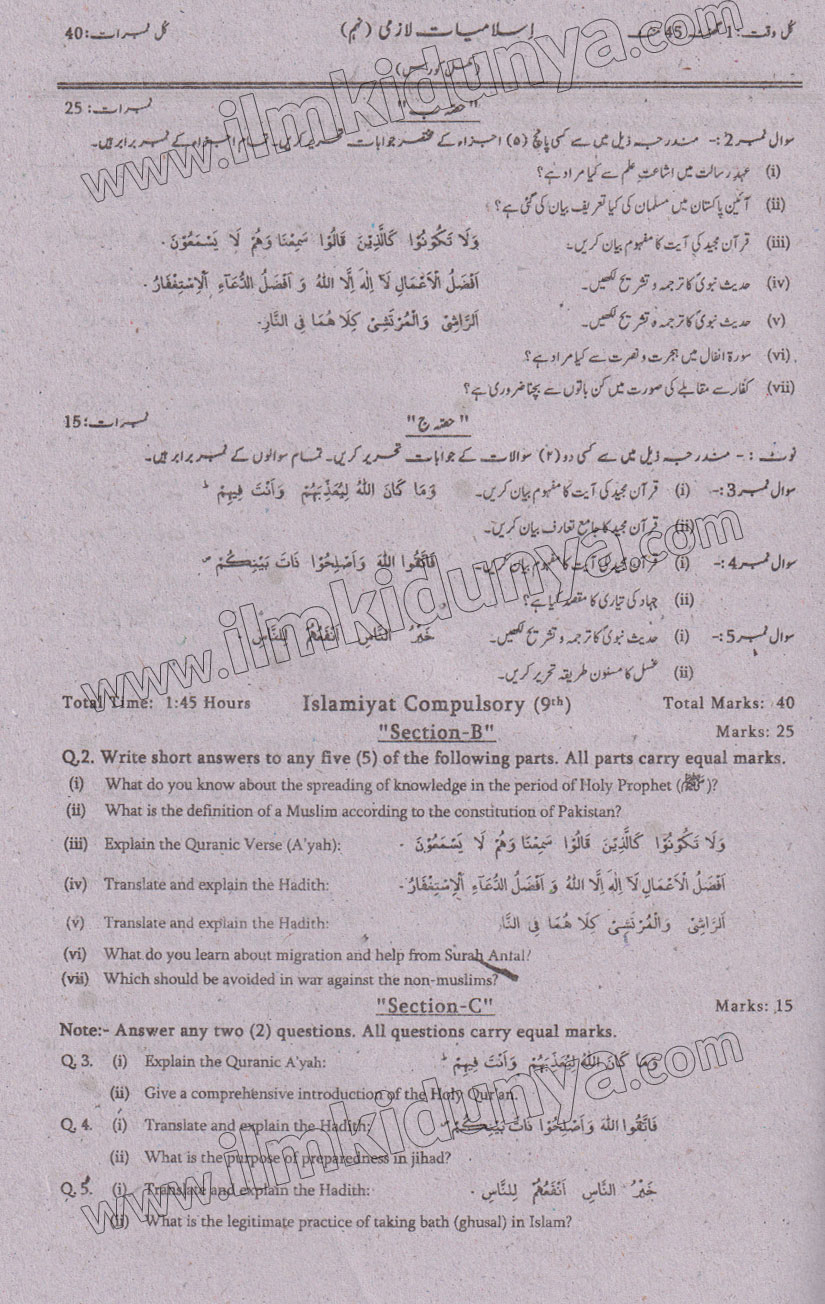 کل نمبرات: 40 اسلامیات لازمی (نہم) کل وقت: 1 45
(مکمل کورس)
نمبرات: 25 "حصہ ب"
سوال نمبر 2:- مندرجہ ذیل میں سے کسی پانچ (۵) اجزاء کے مختصر جوابات تحریر کریں۔ تمام اجزاء کے نمبر برابر ہیں۔
(i) عہدِ رسالت میں اشاعتِ علم سے کیا مراد ہے؟
(ii) آئین پاکستان میں مسلمان کی کیا تعریف بیان کی گئی ہے؟
(iii) قرآن مجید کی آیت کا مفہوم بیان کریں۔ وَلَا تَكُوْنُوْا كَالَّذِيْنَ قَالُوْا سَمِعْنَا وَهُمْ لَا يَسْمَعُوْنَ۔
(iv) حدیث نبویؐ کا ترجمہ و تشریح لکھیں۔ اَفْضَلُ الْاَعْمَالِ لَآ اِلٰهَ اِلَّا اللّٰهُ وَ اَفْضَلُ الدُّعَآءِ اَلْاِسْتِغْفَارُ۔
(v) حدیث نبویؐ کا ترجمہ و تشریح لکھیں۔ اَلرَّاشِىْ وَالْمُرْتَشِىْ كِلَا هُمَا فِى النَّارِ۔
(vi) سورۃ انفال میں ہجرت و نصرت سے کیا مراد ہے؟
(vii) کفار سے مقابلے کی صورت میں کن باتوں سے بچنا ضروری ہے؟
نمبرات: 15 "حصہ ج"
نوٹ :- مندرجہ ذیل میں سے کسی دو (۲) سوالات کے جوابات تحریر کریں۔ تمام سوالوں کے نمبر برابر ہیں۔
سوال نمبر 3:- (i) قرآن مجید کی آیت کا مفہوم بیان کریں۔ وَمَا كَانَ اللّٰهُ لِيُعَذِّبَهُمْ وَاَنْتَ فِيْهِمْ ط
(ii) قرآن مجید کا جامع تعارف بیان کریں۔
سوال نمبر 4:- (i) قرآن مجید کی آیت کا مفہوم بیان کریں۔ فَاتَّقُوا اللّٰهَ وَاَصْلِحُوْا ذَاتَ بَيْنِكُمْ
(ii) جہاد کی تیاری کا مقصد کیا ہے؟
سوال نمبر 5:- (i) حدیث نبویؐ کا ترجمہ و تشریح لکھیں۔ خَيْرُ النَّاسِ اَنْفَعُهُمْ لِلنَّاسِ۔
(ii) غسل کا مسنون طریقہ تحریر کریں۔
Total Time: 1:45 Hours Islamiyat Compulsory (9th) Total Marks: 40
"Section-B" Marks: 25
Q.2. Write short answers to any five (5) of the following parts. All parts carry equal marks.
(i) What do you know about the spreading of knowledge in the period of Holy Prophet (ﷺ)?
(ii) What is the definition of a Muslim according to the constitution of Pakistan?
(iii) Explain the Quranic Verse (A'yah): وَلَا تَكُوْنُوْا كَالَّذِيْنَ قَالُوْا سَمِعْنَا وَهُمْ لَا يَسْمَعُوْنَ ۔
(iv) Translate and explain the Hadith: اَفْضَلُ الْاَعْمَالِ لَآ اِلٰهَ اِلَّا اللّٰهُ وَ اَفْضَلُ الدُّعَآءِ اَلْاِسْتِغْفَارُ۔
(v) Translate and explain the Hadith: اَلرَّاشِىْ وَالْمُرْتَشِىْ كِلَا هُمَا فِى النَّا ۔
(vi) What do you learn about migration and help from Surah Antal?
(vii) Which should be avoided in war against the non-muslims?
"Section-C" Marks: 15
Note:- Answer any two (2) questions. All questions carry equal marks.
Q. 3. (i) Explain the Quranic A'yah: وَمَا كَانَ اللّٰهُ لِيُعَذِّبَهُمْ وَاَنْتَ فِيْهِمْ ط
(ii) Give a comprehensive introduction of the Holy Qur'an.
Q. 4. (i) Translate and explain the Hadith: فَاتَّقُوا اللّٰهَ وَاَصْلِحُوْا ذَاتَ بَيْنِكُمْ
(ii) What is the purpose of preparedness in jihad?
Q. 5. (i) Translate and explain the Hadith: خَيْرُ النَّاسِ اَنْفَعُهُمْ لِلنَّاسِ ۔
(ii) What is the legitimate practice of taking bath (ghusal) in Islam?
www.ilmkidunya.com
www.ilmkidunya.com
www.ilmkidunya.com